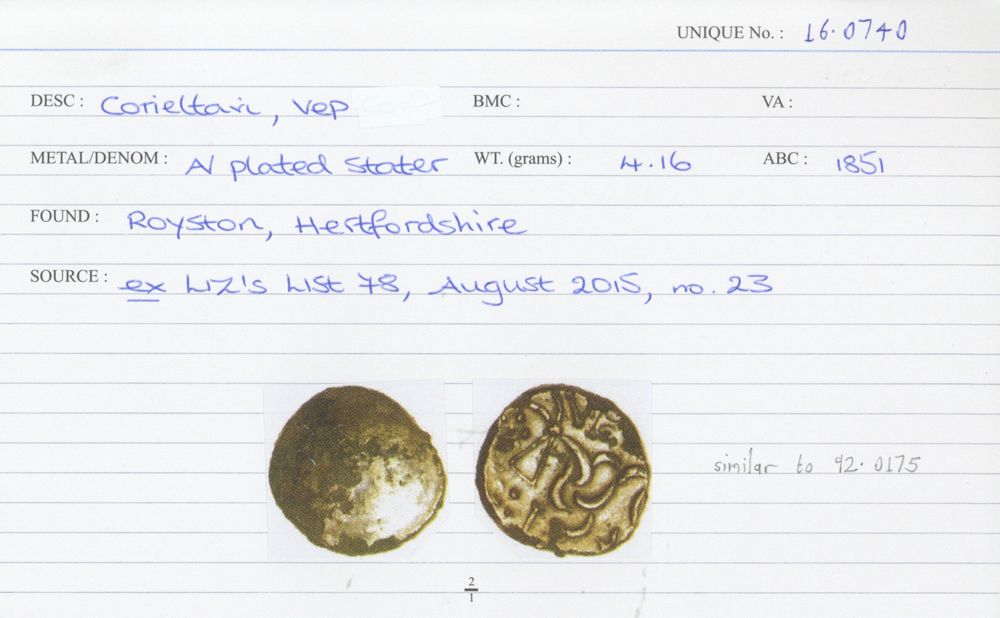 UNIQUE No. : 16.0740
DESC : Corieltavi, Vep BMC : VA :
METAL/DENOM : AV plated stater WT. (grams) : 4.16 ABC : 1851
FOUND : Royston, Hertfordshire
SOURCE : ex Liz's List 78, August 2015, no. 23
similar to 92.0175
2
1